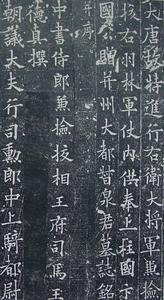 大唐故特進行右衛大將軍兼撿
校右羽林軍仗內供奉上柱國卞
國公贈并州大都督泉君墓誌銘
并序
中書侍郎兼撿挍相王府司馬王
德真撰
朝議大夫行司勳郎中上騎都尉